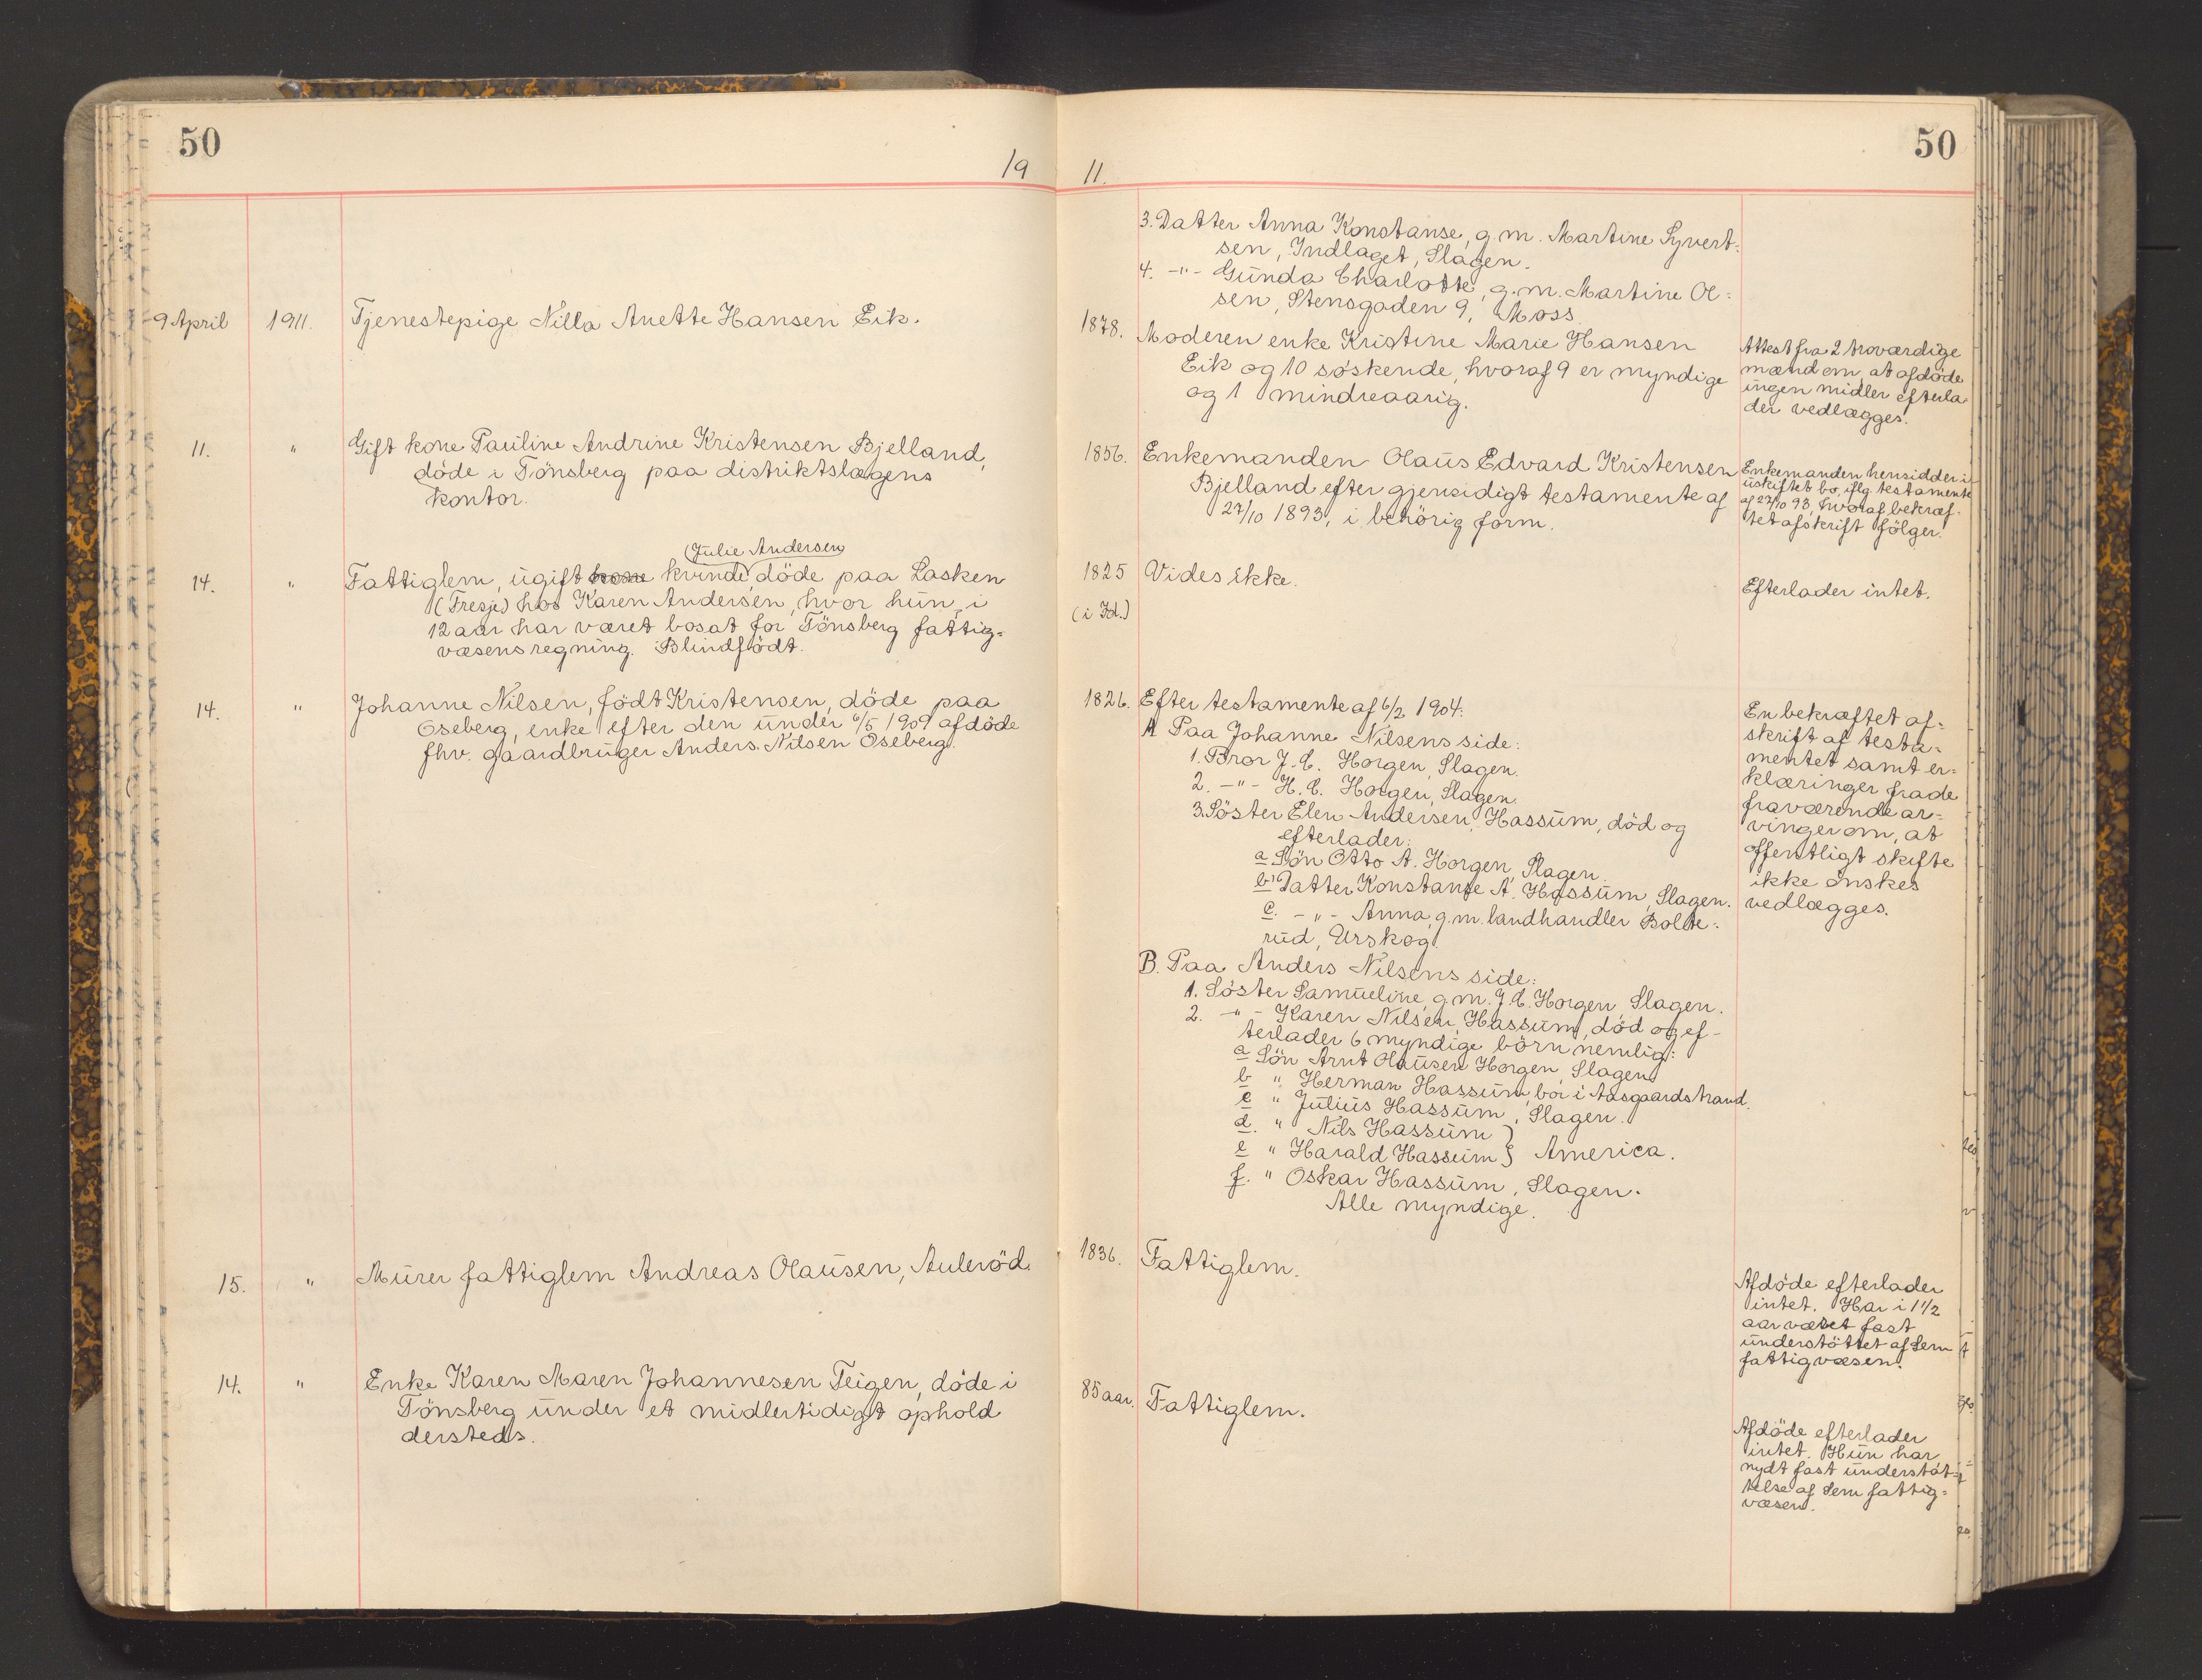 50
19
9 April 1911. Tjenestepige Nilla Anette Hansen Eik.
11. " Gift kone Pauline Andrine Kristensen Bjelland,
döde i Tönsberg paa distriktslægens
kontor.
(Julie Andersen)
14. " Fattiglem, ugift kone kvinde döde paa Lasken
(Fresje) hos Karen Andersen, hvor hun i
12 aar har været bosat for Tönsberg fattig=
væsens regning. Blindfödt.
14. " Johanne Nilsen, födt Kristensen, döde paa
Oseberg, enke efter den under 6/5 1909 afdöde
fhv. gaardbruger Anders Nilsen Oseberg.
15. " Murer fattiglem Andreas Olausen, Auleröd.
14. " Enke Karen Maren Johannesen Teigen, döde i
Tönsberg under et midlertidigt ophold
dersteds.
50
11.
3. Datter Anna Konstanse, g.m. Martine Syvert=
sen, Indlaget, Slagen.
4. -"- Gunda Charlotte, g.m. Martine Ol=
sen, Stensgaden 9, Moss.
1878. Moderen enke Kristine Marie Hansen
Eik og 10 söskende, hvoraf 9 er myndige
og 1 mindreaarig.
Attest fra 2 troværdige
mænd om, at afdöde
ingen midler efterla
der vedlægges.
1856. Enkemanden Olaus Edvard Kristensen
Bjelland efter gjensidigt testamente af
27/10 1893, i behörig form.
Enkemanden hensidder i
uskiftet bo, iflg. testamente
af 27/10 93, hvoraf bekræf-
tet afskrift fölger.
1825 Vides ikke.
(i Jd.)
Efterlader intet.
1826. Efter testamente af 6/2 1904:
A Paa Johanne Nilsens side:
1. Bror J. C. Horgen, Slagen.
2. -"- H. C. Horgen, Slagen.
3. Söster Elen Andersen Hassum, död og
efterlader:
a Sön Otto A. Horgen, Slagen.
b Datter Konstanse A. Hassum, Slagen.
c. -"- Anna, g.m. landhandler Bolte=
rud, Urskog.
B. Paa Anders Nilsens side:
1. Söster Samueline, g.m. J. C. Horgen, Slagen.
2. -"- Karen Nilsen Hassum, död og ef-
terlader 6 myndige börn nemlig:
a Sön Arnt Olausen Horgen, Slagen
b " Herman Hassum, bor i Aasgaardstrand.
c " Julius Hassum, Slagen.
d. " Nils Hassum }
e " Harald Hassum } America.
f. " Oskar Hassum, Slagen.
Alle myndige.
En bekræftet af=
skrift af testa=
mentet samt er=
klæringer fra de
fraværende ar=
vinger om, at
offentligt skifte
ikke önskes
vedlægges.
1836. Fattiglem.
Afdöde efterlader
intet. Har i 1 1/2
aar været fast
understöttet af Sem
fattigvæsen.
85 aar. Fattiglem.
Afdöde efterlader
intet. Hun har
nydt fast understöt=
telse af Sem fattig=
væsen.